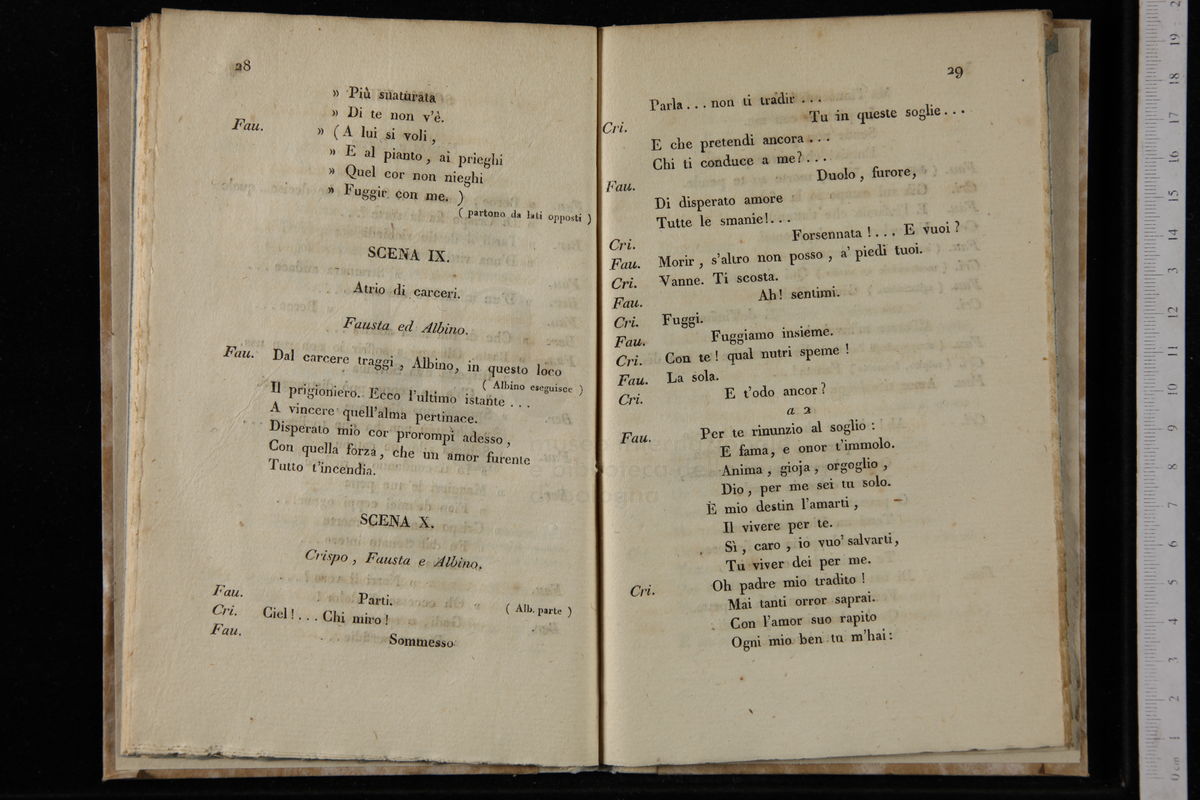 28
» Più snaturata
» Di te non v'è.
Fau. » ( A lui si voli ,
» E al pianto , ai prieghi
» Quel cor non nieghi
» Fuggir con me. )
( partono da lati opposti )
SCENA IX.
Atrio di carceri.
Fausta ed Albino.
Fau. Dal carcere traggi , Albino, in questo loco
( Albino eseguisce )
Il prigioniero. Ecco l'ultimo istante . . .
A vincere quell'alma pertinace.
Disperato mio cor prorompi adesso ,
Con quella forza , che un amor furente
Tutto t'incendia.
SCENA X.
Crispo , Fausta e Albino.
Fau. Parti. ( Alb. parte )
Cri. Ciel ! . . . Chi miro !
Fau. Sommesso
29
Parla . . . non ti tradir . . .
Cri. Tu in queste soglie . . .
E che pretendi ancora . . .
Chi ti conduce a me ? . . .
Fau. Duolo , furore,
Di disperato amore
Tutte le smanie ! . . .
Cri. Forsennata ! . . . E vuoi ?
Fau. Morir , s'altro non posso , a' piedi tuoi.
Cri. Vanne. Ti scosta.
Fau. Ah ! sentimi.
Cri. Fuggi.
Fau. Fuggiamo insieme.
Cri. Con te ! qual nutri speme !
Fau. La sola.
Cri. E t'odo ancor ?
a 2
Fau. Per te rinunzio al soglio :
E fama, e onor t'immolo.
Anima , gioja , orgoglio ,
Dio , per me sei tu solo.
È mio destin l'amarti ,
Il vivere per te.
Sì , caro , io vuo' salvarti,
Tu viver dei per me.
Cri. Oh padre mio tradito !
Mai tanti orror saprai.
Con l'amor suo rapito
Ogni mio ben tu m'hai :